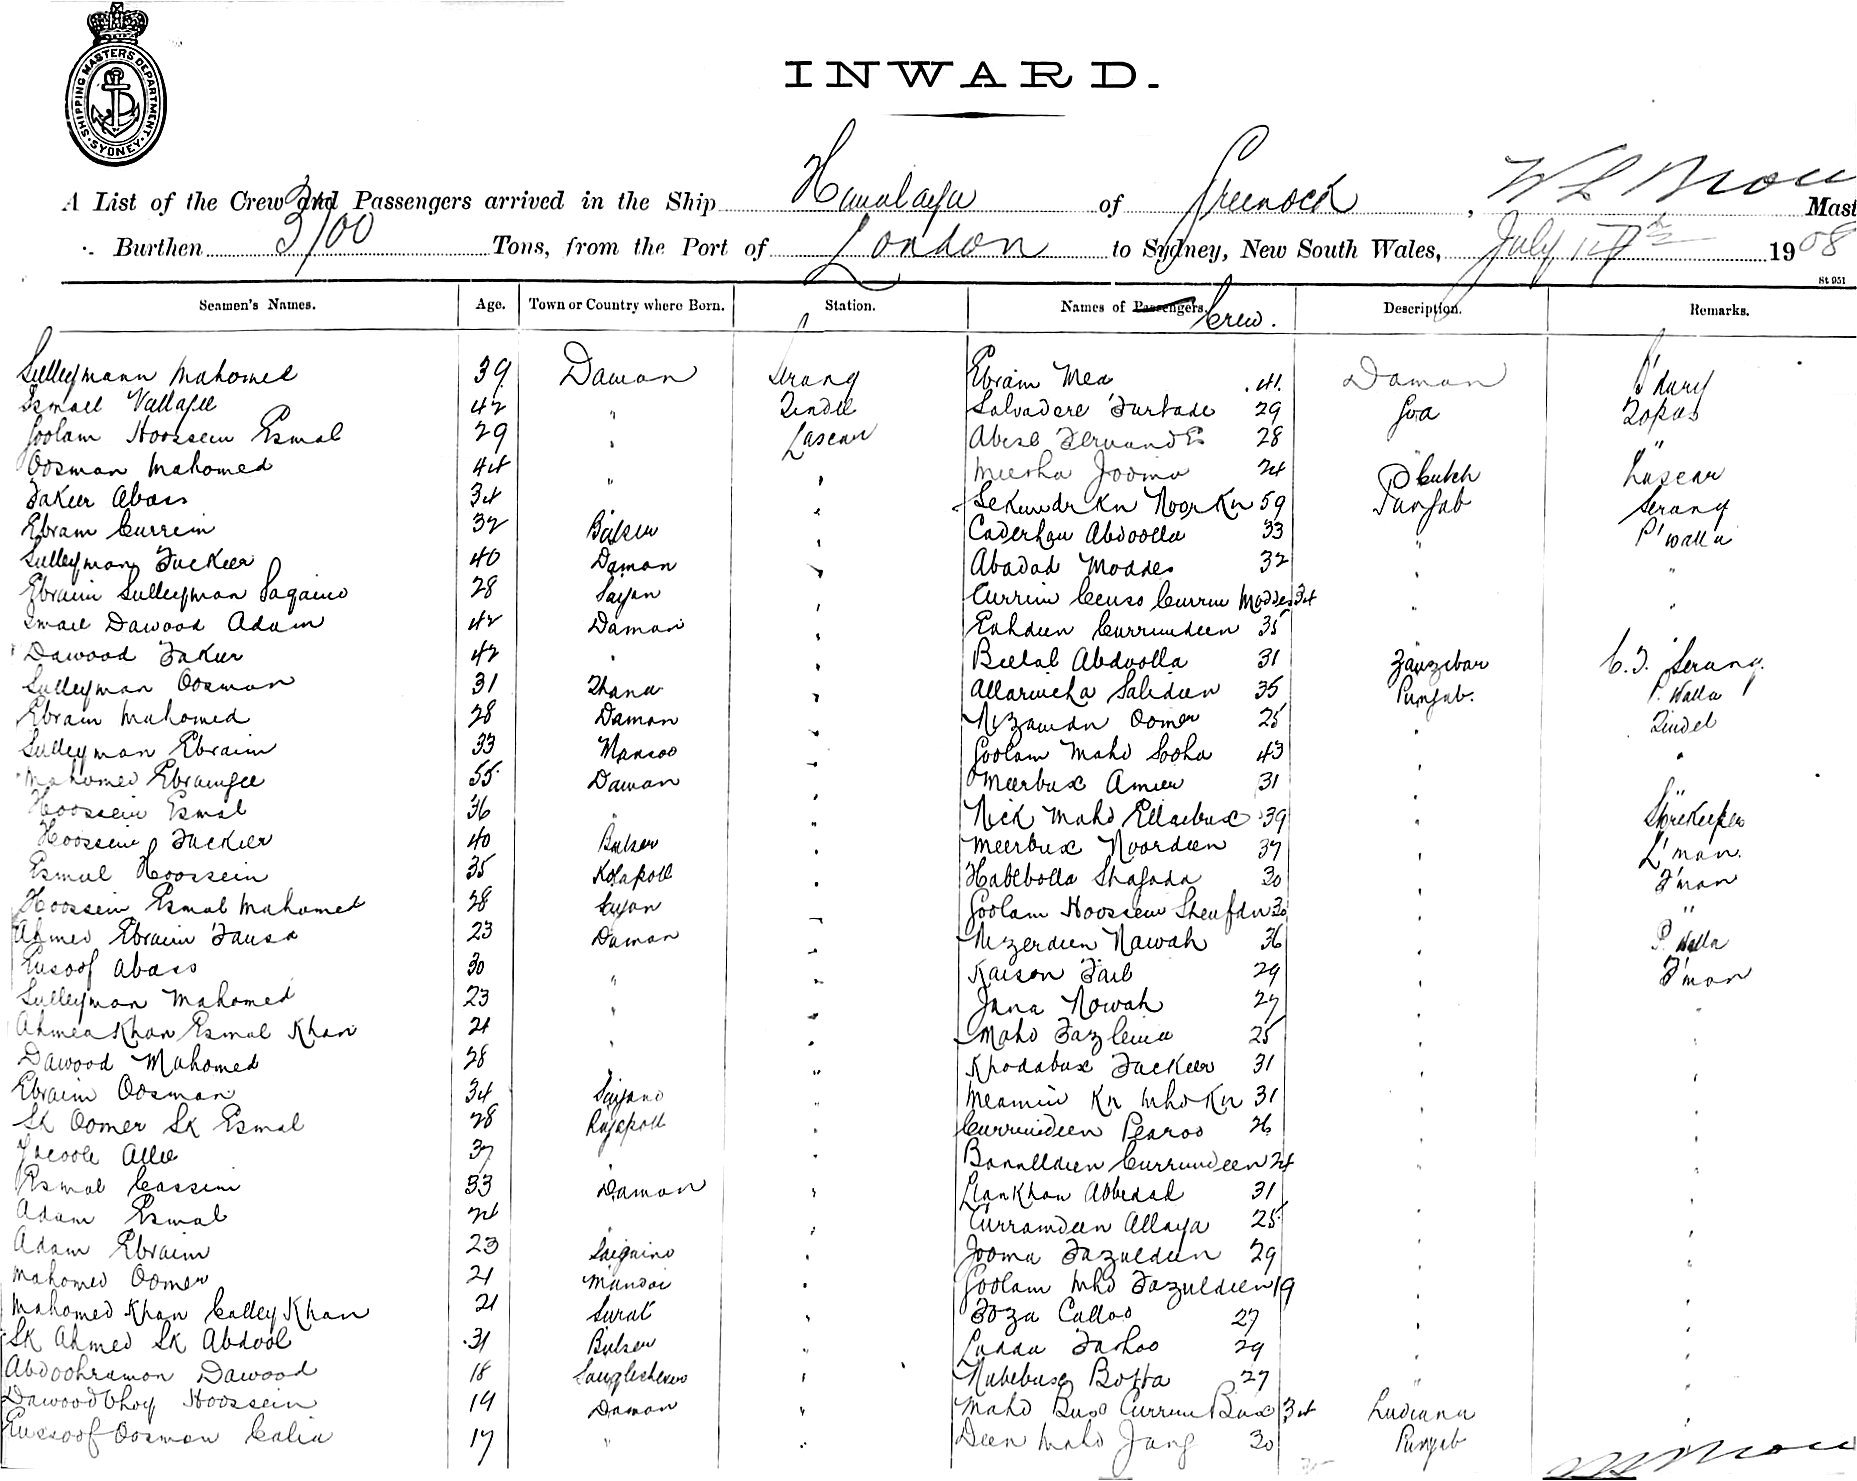 SHIPPING MASTERS DEPARTMENT
SYDNEY
INWARD.
A List of the Crew and Passengers arrived in the Ship Himalaya of Greenock, W L Brown Mast
Burthen 3100 Tons, from the Port of London to Sydney, New South Wales, July 1908
St 951
Seamen's Names. Age. Town or Country where Born. Station. Names of Passengers. Crew. Description. Remarks.
Sulleymann Mahomed 39 Daman Serang Ebraim Mea 41 Daman B'dary
Esmail Vallajee 42 " Tindel Salvadore Furtado 29 Goa Topas
Goolam Hoossein Esmal 29 " Lascar Abese Fernandes 28 " "
Oosman Mahomed 44 " " Meerha Jooma 24 Lascar
Fakeer Abass 34 " " Sekundr Kn Noor Kn 59 Punjab Serang
Ebram Currim 32 Bulser " Caderkhan Abdoolla 33 " P'walla
Sulleyman Fuckeer 40 Daman " Abadad Moddes 32 " "
Ebraim Sulleyman 28 " Currim Currim Moddes 34 " "
Esmail Dawood Adam 42 Daman Eahdeen Currumdeen 35
Dawood Fakir 42 " " Beelal Abdoolla 31 Zanzibar C.T. Serang.
Sulleyman Oosman 31 Thana " Allarucha Saledeen 35 Punjab. P. Walla
Ebraim Mahomed 28 Daman " Nizamdn Oomer 25 " Tindel
Sulleyman Ebraim 33 " Goolam Mahd Sooha 43 " "
Mahomed Ebramjee 55 Daman " Meerbux Ameer 31 " "
Hoossein Esmal 36 " " Nick Mahd Ellaebux 39 " Storekeeper
Hoossein Fuckeer 40 Bulser " Meerbux Noordeen 37 " L'man.
Esmal Hoossein 35 " Habebolla Shajada 30 " F'man
Hoossein Esmal Mahomed 28 " Goolam Hoossein 30 " "
Ahmed Ebraim 23 Daman " Nizerdeen Nawah 36 " P. Walla
Eusoof Abass 30 " " Kaison Fail 29 " F'man
Sulleyman Mahomed 23 " " Jana Nowah 27 " "
Ahmed Khan Esmal Khan 21 " " Mahd 25 " "
Dawood Mahomed 28 " Khodabux Fuckeer 31 " "
Ebraim Oosman 34 " Meamin Kn Mhd Kn 31 " "
Sk Oomer Sk Esmal 28 " Currumdeen Pearoo 26 " "
Allee 37 " " Currumdeen 24 " "
Esmal Cassim 33 Daman " Abbedad 31 " "
Adam Esmal 24 " " Curramdeen Allaya 25 " "
Adam Ebraim 23 " Jooma Fazuldeen 29 " "
Mahomed Oomer 21 " Goolam Mhd Fazuldeen 19 " "
Mahomed Khan Calley Khan 21 Surat " Foza Calloo 27 " "
Sk Ahmed Sk Abdool 31 Bulser " 29 " "
Abdoohraman Dawood 18 " Botta 27 " "
Dawoodbhoy Hoossein 19 Daman " Mahd Bux Currim Bux 34 Ludiana "
Eussoof Oosman Calia 17 " " Deen Mahd Jang 30 Punjab "